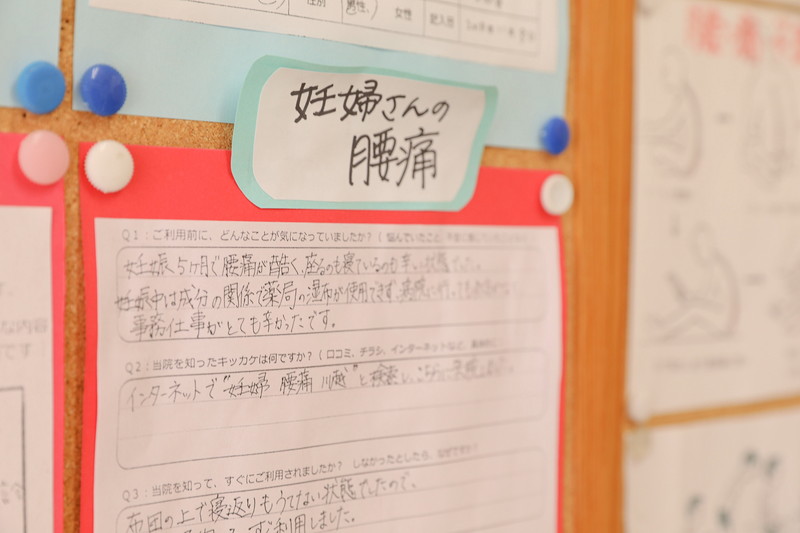 性別
男性
女性
記入日
妊婦さんの
腰痛
Q1：ご利用前に、どんなことが気になっていましたか？（悩んでいたこと、
妊娠5ヶ月で腰痛が酷く、座るのも寝ているのも辛い状態でした。
妊娠中は成分の関係で薬局の湿布が使用できず、
事務仕事がとても辛かったです。
Q2：当院を知ったキッカケは何ですか？（口コミ、チラシ、インターネットなど、
インターネットで"妊婦 腰痛 川越"と検索し、こちらに来院しました。
Q3：当院を知って、すぐにご利用されましたか？ しなかったとしたら、なぜですか？
布団の上で寝返りもうてない状態でしたので、
すぐ利用しました。
な内容
です